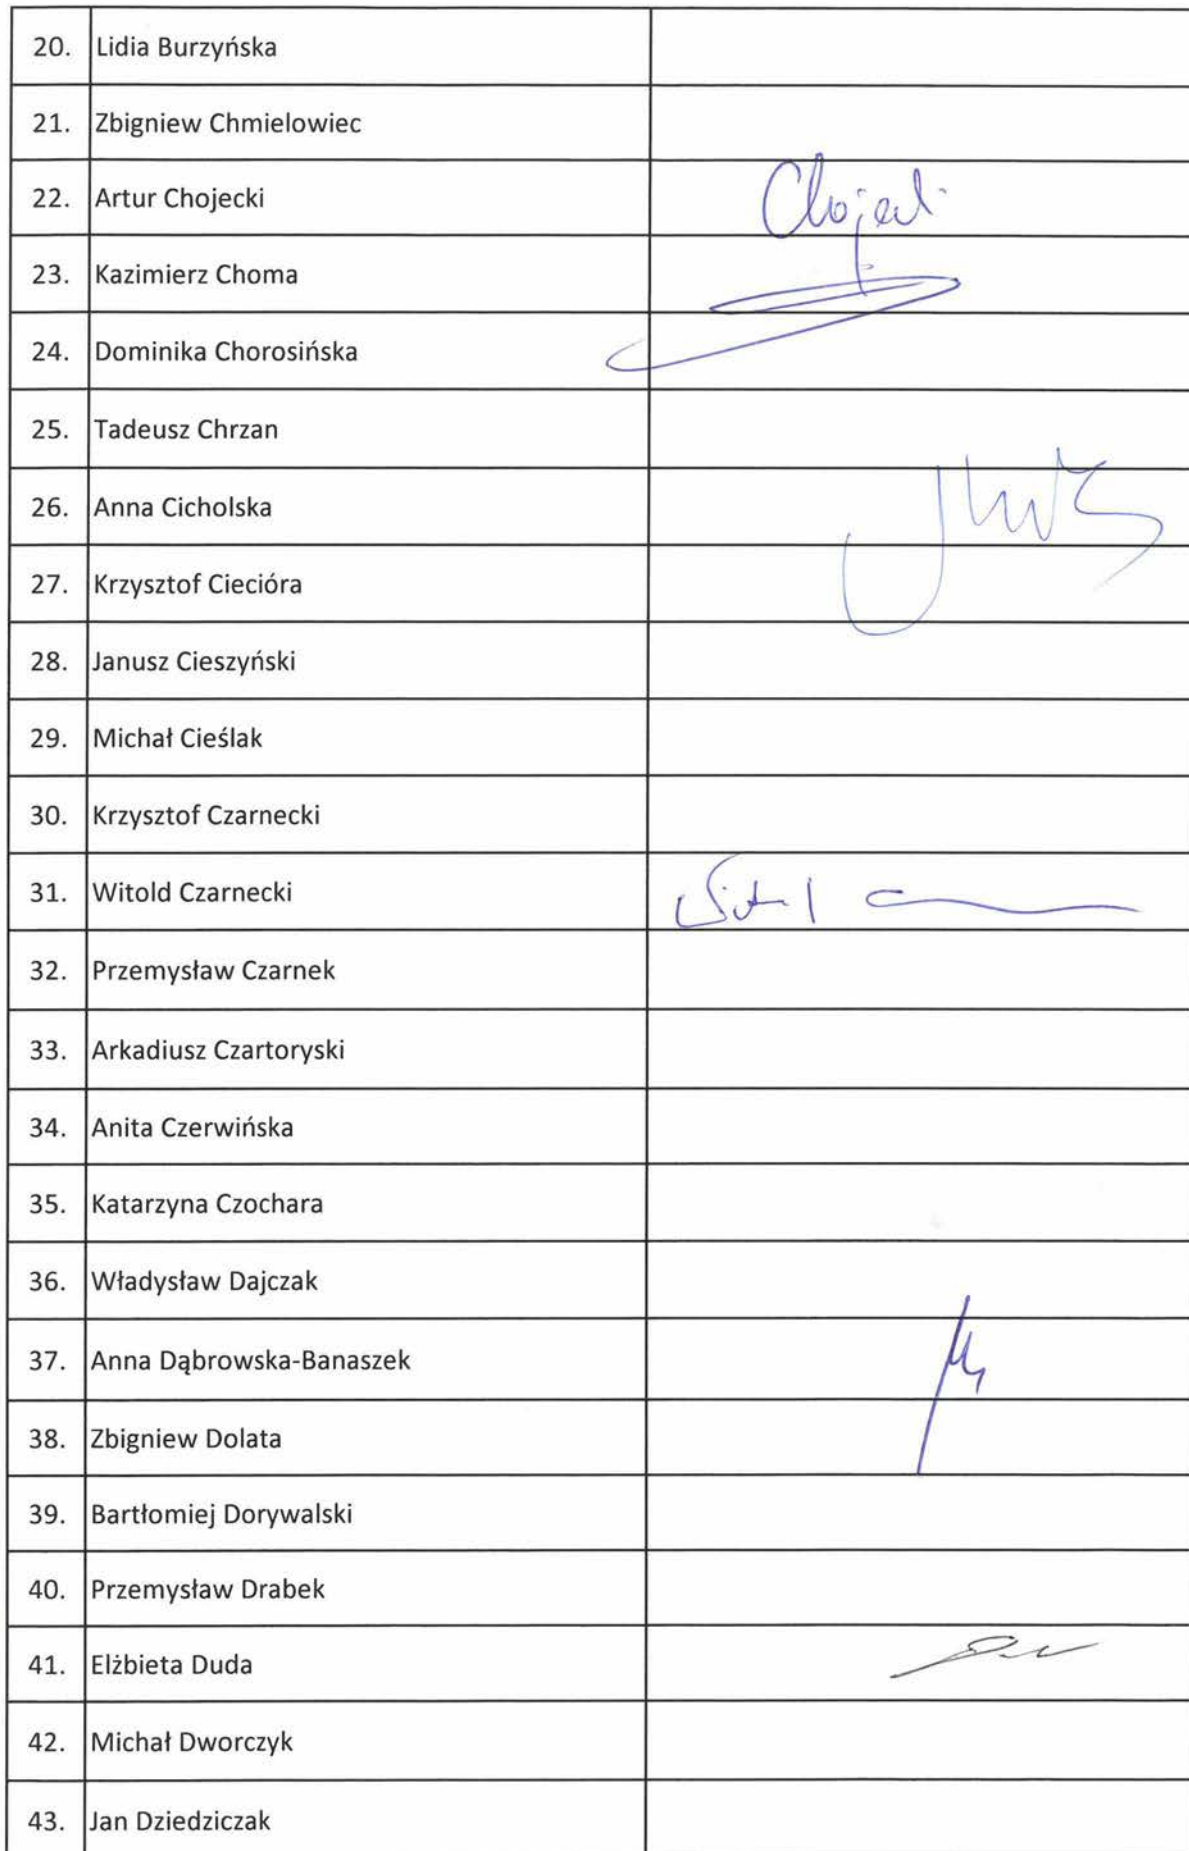 20. Lidia Burzyńska
21. Zbigniew Chmielowiec
22. Artur Chojecki
23. Kazimierz Choma
24. Dominika Chorosińska
25. Tadeusz Chrzan
26. Anna Cicholska
27. Krzysztof Ciecióra
28. Janusz Cieszyński
29. Michał Cieślak
30. Krzysztof Czarnecki
31. Witold Czarnecki
32. Przemysław Czarnek
33. Arkadiusz Czartoryski
34. Anita Czerwińska
35. Katarzyna Czochara
36. Władysław Dajczak
37. Anna Dąbrowska-Banaszek
38. Zbigniew Dolata
39. Bartłomiej Dorywalski
40. Przemysław Drabek
41. Elżbieta Duda
42. Michał Dworczyk
43. Jan Dziedziczak